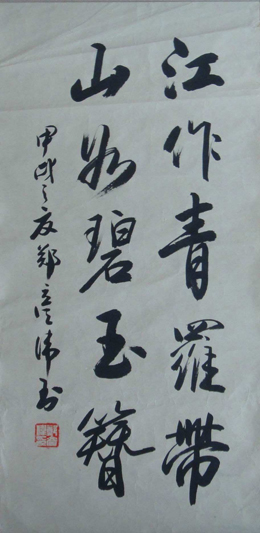 江作青羅帶
山如碧玉簪
甲戌之夏鄭